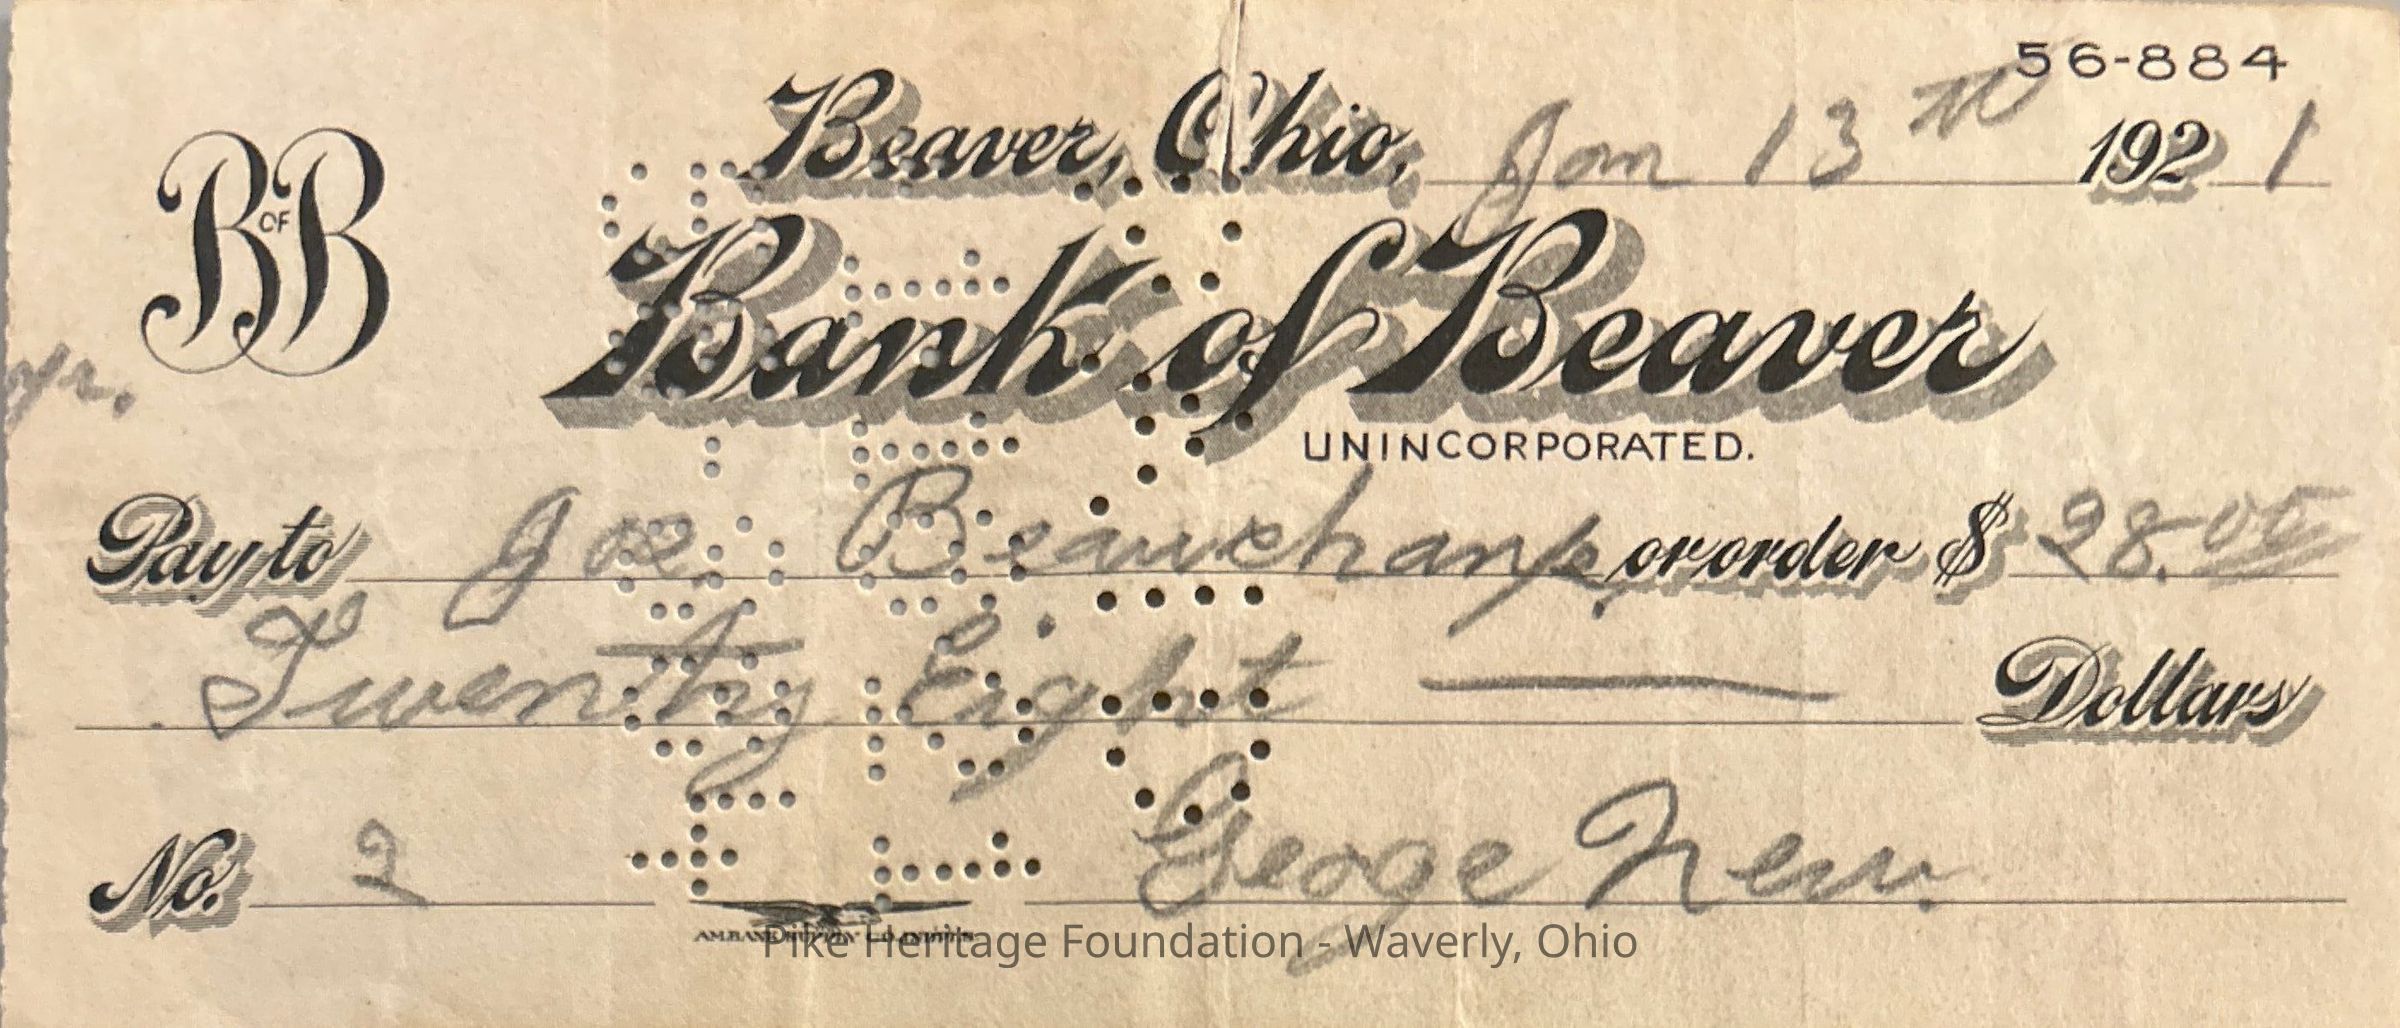 56-884
Beaver, Ohio, Jan 13th 1921
B OF B
Bank of Beaver
UNINCORPORATED.
Pay to Joe Beauchamp, or order $ 28.00
Twenty Eight Dollars
No. 2 Geoge New.
Pike Heritage Foundation - Waverly, Ohio